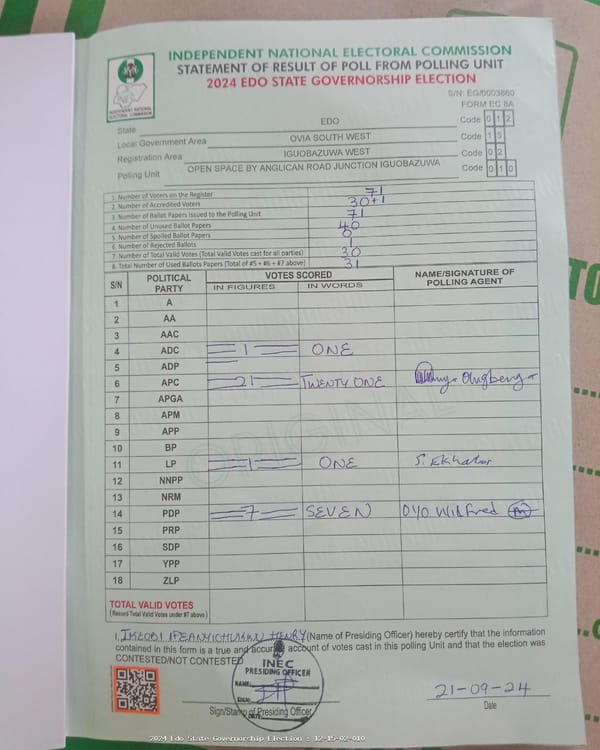 INDEPENDENT NATIONAL ELECTORAL COMMISSION
STATEMENT OF RESULT OF POLL FROM POLLING UNIT
2024 EDO STATE GOVERNORSHIP ELECTION
S/N: EG/0003860
FORM EC 8A
INDEPENDENT NATIONAL ELECTORAL COMMISSION
State EDO Code 012
Local Government Area OVIA SOUTH WEST Code 15
Registration Area IGUOBAZUWA WEST Code 02
Polling Unit OPEN SPACE BY ANGLICAN ROAD JUNCTION IGUOBAZUWA Code 010
1. Number of Voters on the Register 71
2. Number of Accredited Voters 30+1
3. Number of Ballot Papers Issued to the Polling Unit 71
4. Number of Unused Ballot Papers 40
5. Number of Spoiled Ballot Papers 0
6. Number of Rejected Ballots 1
7. Number of Total Valid Votes (Total Valid Votes cast for all parties) 30
8. Total Number of Used Ballots Papers (Total of #5 + #6 + #7 above) 31
S/N POLITICAL PARTY VOTES SCORED NAME/SIGNATURE OF POLLING AGENT
IN FIGURES IN WORDS
1 A
2 AA
3 AAC
4 ADC 1 ONE
5 ADP
6 APC 21 TWENTY ONE
7 APGA
8 APM
9 APP
10 BP
11 LP 1 ONE S. Ekhator
12 NNPP
13 NRM
14 PDP 7 SEVEN OYO Wilfred
15 PRP
16 SDP
17 YPP
18 ZLP
ORIGINAL
TOTAL VALID VOTES
(Record Total Valid Votes under #7 above)
I, HENRY (Name of Presiding Officer) hereby certify that the information
contained in this form is a true and accurate account of votes cast in this polling Unit and that the election was
CONTESTED/NOT CONTESTED
INEC
PRESIDING OFFICER
NAME:
SIGN:
DATE:
Sign/Stamp of Presiding Officer
21-09-24
Date
2024 Edo State Governorship Election : 12-15-02-010